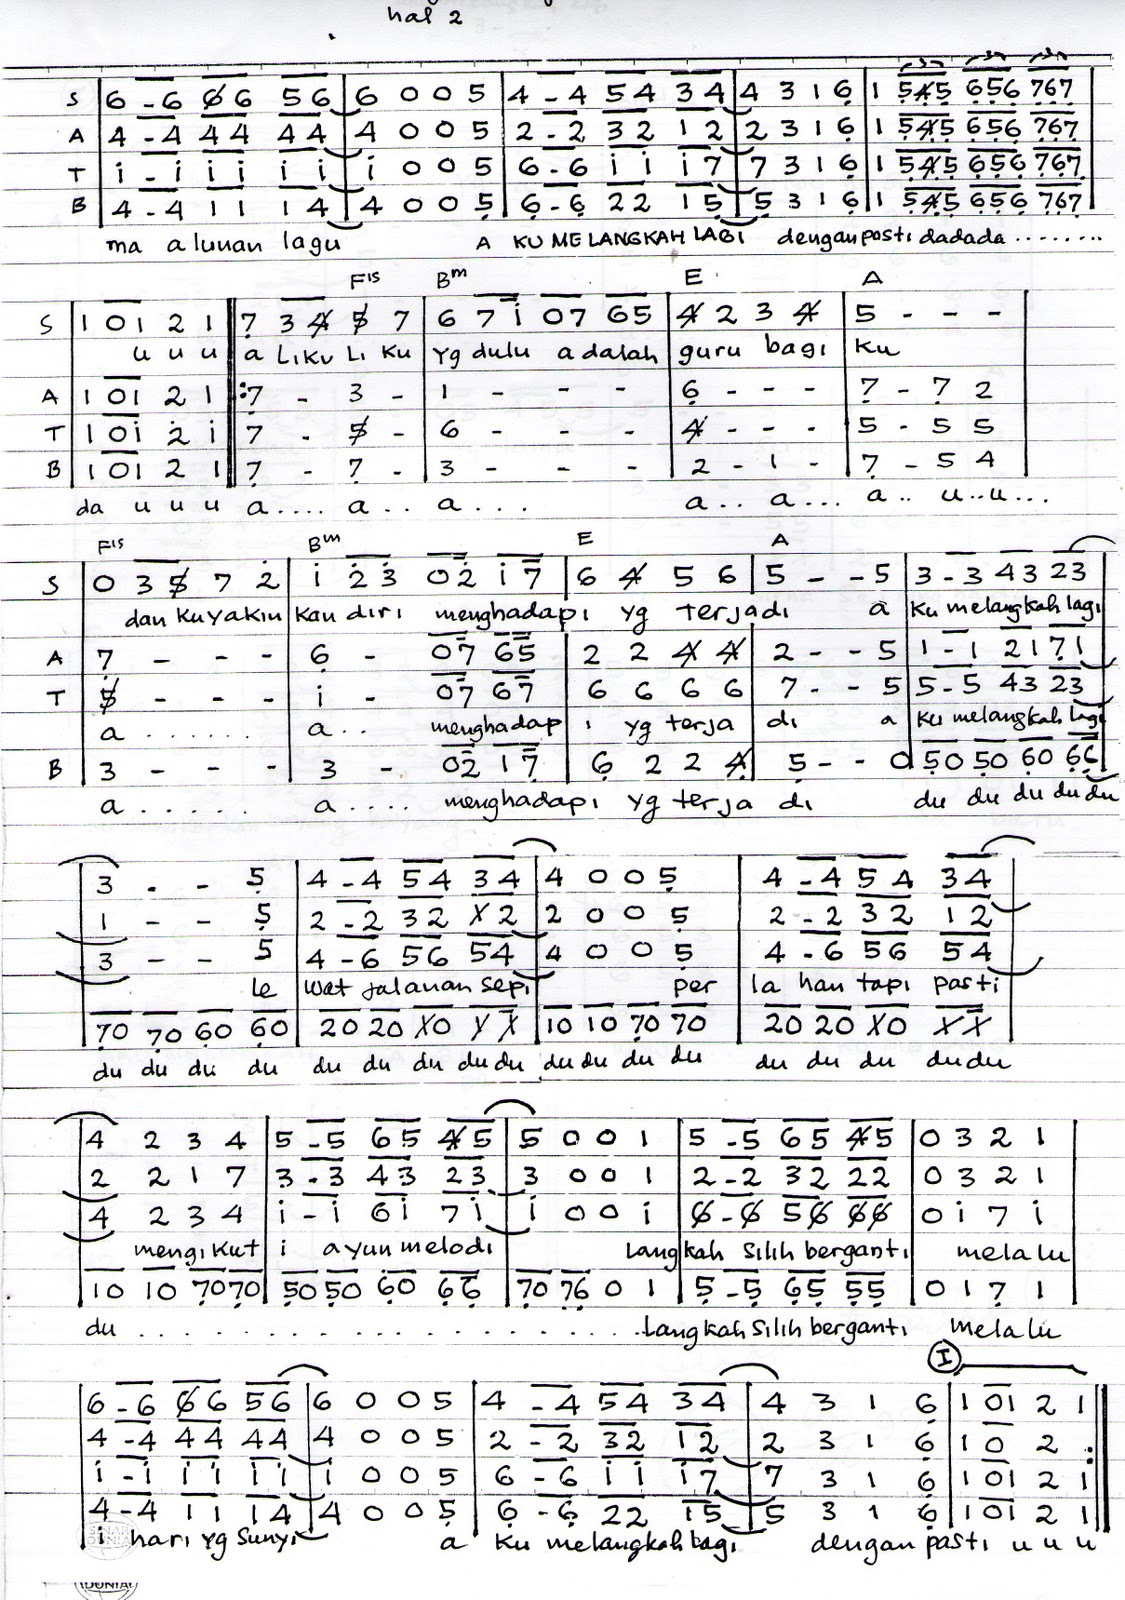 hal 2
S | 6 - 6 6̸ 6 5 6 | 6 0 0 5 | 4 - 4 5 4 3 4 | 4 3 1 6 | 1 5 4̸ 5 6 5 6 7 6 7
A | 4 - 4 4 4 4 4 | 4 0 0 5 | 2 - 2 3 2 1 2 | 2 3 1 6 | 1 5 4̸ 5 6 5 6 7 6 7
T | i - i i i i i | i 0 0 5 | 6 - 6 i i i 7 | 7 3 1 6 | 1 5 4̸ 5 6 5 6 7 6 7
B | 4 - 4 1 1 1 4 | 4 0 0 5 | 6 - 6 2 2 1 5 | 5 3 1 6 | 1 5 4̸ 5 6 5 6 7 6 7
ma a lunan lagu A KU MELANGKAH LAGI dengan pasti dadada ........
Fis Bm E A
S | 1 0 1 2 1 || 7 3 4̸ 5̸ 7 | 6 7 i 0 7 6 5 | 4̸ 2 3 4̸ | 5 - - -
u u u a LIKU LI KU Yg dulu a dalah guru bagi KU
A | 1 0 1 2 1 ||: 7 - 3 - | 1 - - - | 6 - - - | 7 - 7 2
T | 1 0 i 2 i || 7 - 5̸ - | 6 - - - | 4̸ - - - | 5 - 5 5
B | 1 0 1 2 1 || 7 - 7 - | 3 - - - | 2 - 1 - | 7 - 5 4
da u u u a.... a.. a... a.. a... a.. u..u...
Fis Bm E A
S | 0 3 5̸ 7 2 | i 2 3 0 2 i 7 | 6 4̸ 5 6 | 5 - - 5 | 3 - 3 4 3 2 3
dan kuyakin kan diri menghadapi yg terjadi a ku melangkah lagi
A | 7 - - - | 6 - 0 7 6 5 | 2 2 4̸ 4̸ | 2 - - 5 | 1 - 1 2 1 7 1
T | 5̸ - - - | i - 0 7 6 7 | 6 6 6 6 | 7 - - 5 | 5 - 5 4 3 2 3
a ...... a.. menghadap i yg terja di a ku melangkah lagi
B | 3 - - - | 3 - 0 2 1 7 | 6 2 2 4̸ | 5 - - 0 | 5 0 5 0 6 0 6 6
a ...... a.... menghadapi yg terja di du du du du du
3 . - 5 | 4 - 4 5 4 3 4 | 4 0 0 5 | 4 - 4 5 4 3 4
1 - - 5 | 2 - 2 3 2 1̸ 2 | 2 0 0 5 | 2 - 2 3 2 1 2
3 - - 5 | 4 - 6 5 6 5 4 | 4 0 0 5 | 4 - 6 5 6 5 4
le wat jalanan sepi per la han tapi pasti
7 0 7 0 6 0 6 0 | 2 0 2 0 1̸ 0 1̸ 1̸ | 1 0 1 0 7 0 7 0 | 2 0 2 0 1̸ 0 1̸ 1̸
du du du du du du du du du du du du du du du du dudu
4 2 3 4 | 5 - 5 6 5 4̸ 5 | 5 0 0 1 | 5 - 5 6 5 4̸ 5 | 0 3 2 1
2 2 1 7 | 3 - 3 4 3 2 3 | 3 0 0 1 | 2 - 2 3 2 2 2 | 0 3 2 1
4 2 3 4 | i - i 6 i 7 i | i 0 0 i | 6̸ - 6̸ 5 6̸ 6̸ 6̸ | 0 i 7 i
mengikut i ayun melodi langkah silih berganti melalu
1 0 1 0 7 0 7 0 | 5 0 5 0 6 0 6 6 | 7 0 7 6 0 1 | 5 - 5 6 5 5 5 | 0 1 7 1
du .................... langkah silih berganti melalu
I
6 - 6 6̸ 6 5 6 | 6 0 0 5 | 4 - 4 5 4 3 4 | 4 3 1 6 | 1 0 1 2 1
4 - 4 4 4 4 4 | 4 0 0 5 | 2 - 2 3 2 1 2 | 2 3 1 6 | 1 0 2 :
i - i i i i i | i 0 0 5 | 6 - 6 i i i 7 | 7 3 1 6 | 1 0 1 2 1
4 - 4 1 1 1 4 | 4 0 0 5 | 6 - 6 2 2 1 5 | 5 3 1 6 | 1 0 1 2 1
i hari yg sunyi a ku melangkah lagi dengan pasti u u u
DUNIA